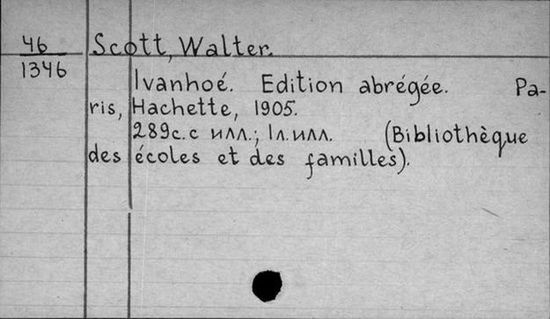 46 Scott, Walter.
1346
Ivanhoé. Edition abrégée. Pa-
ris, Hachette, 1905.
289с. с илл.; 1л. илл. (Bibliothèque
des écoles et des familles).